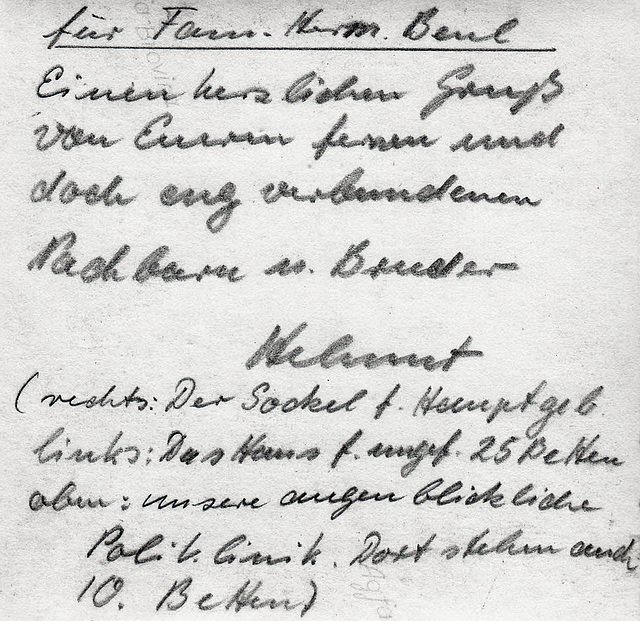 für Fam. Herm. Beul
Einen herzlichen Gruß
von Eurem fernen und
doch eng verbundenen
Nachbarn u. Bruder
Helmut
(rechts: Der Sockel f. Hauptgeb.
links: Das Haus f. ungf. 25 Betten
oben: unsere augenblickliche
Poliklinik. Dort stehen auch
10. Betten)